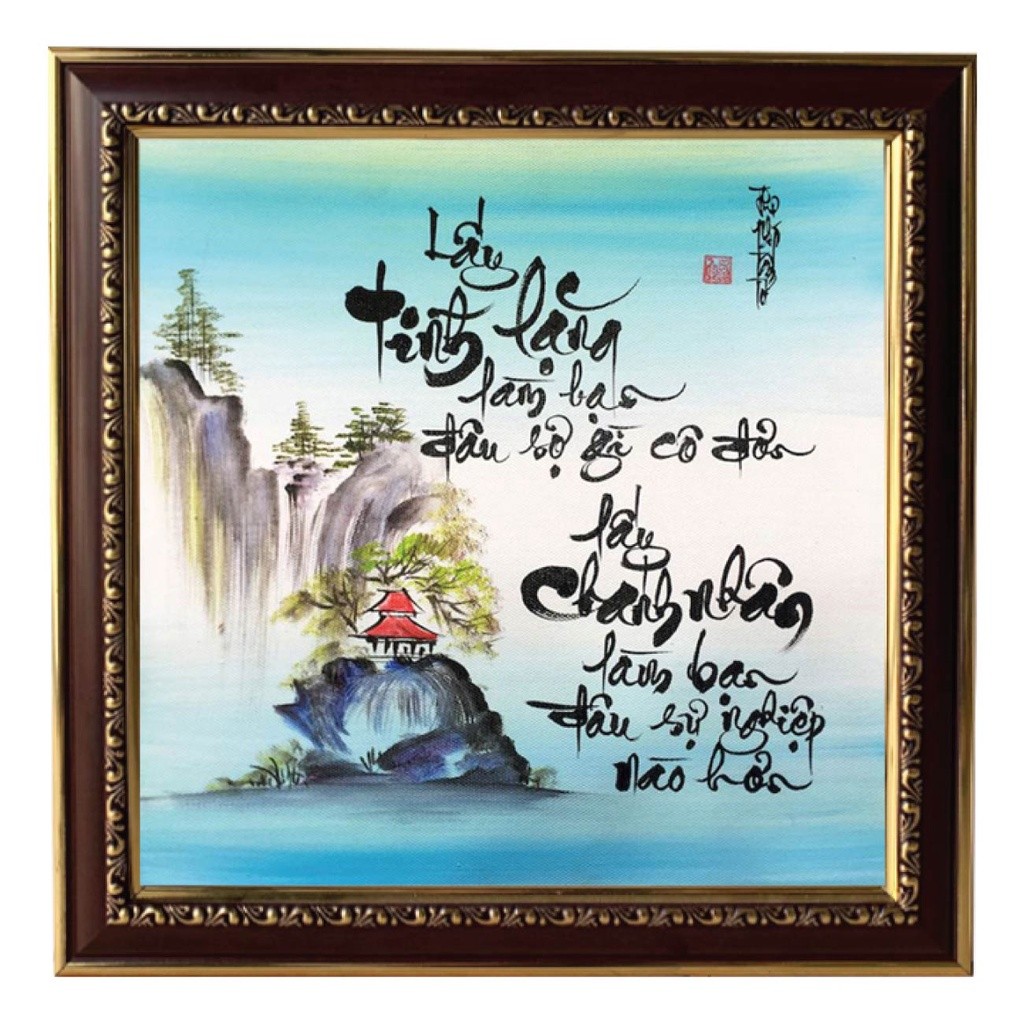 Lấy
tĩnh lặng
làm bạn
đâu sợ gì cô đơn
lấy
Chánh nhân
làm bạn
đâu sự nghiệp
nào hơn